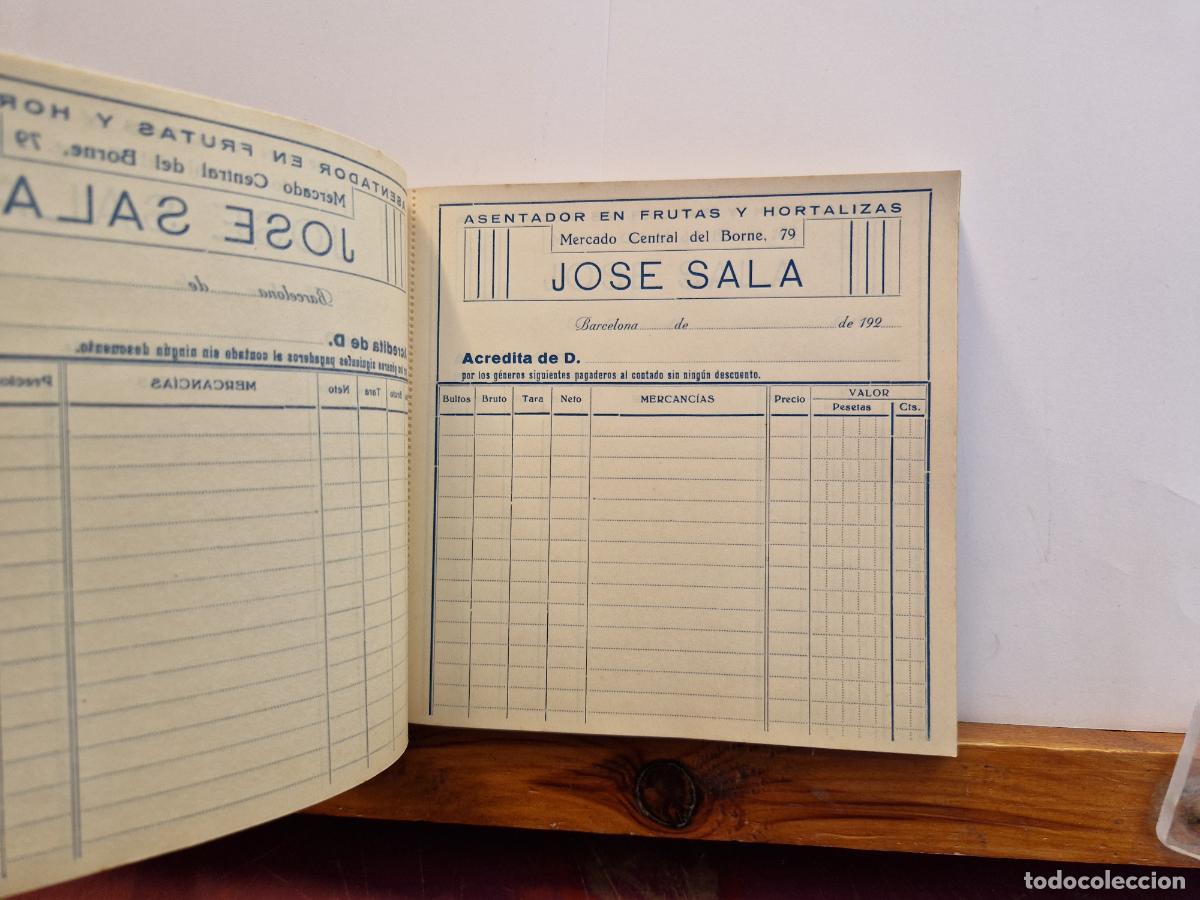 ASENTADOR EN FRUTAS Y HOR
Mercado Central del Borne, 79
JOSE SALA
Barcelona de
Acredita de D.
por los géneros siguientes pagaderos al contado sin ningún descuento.
Bruto Tara Neto MERCANCÍAS Precio
ASENTADOR EN FRUTAS Y HORTALIZAS
Mercado Central del Borne, 79
JOSE SALA
Barcelona de de 192
Acredita de D.
por los géneros siguientes pagaderos al contado sin ningún descuento.
Bultos Bruto Tara Neto MERCANCÍAS Precio VALOR
Pesetas Cts.
todocoleccion